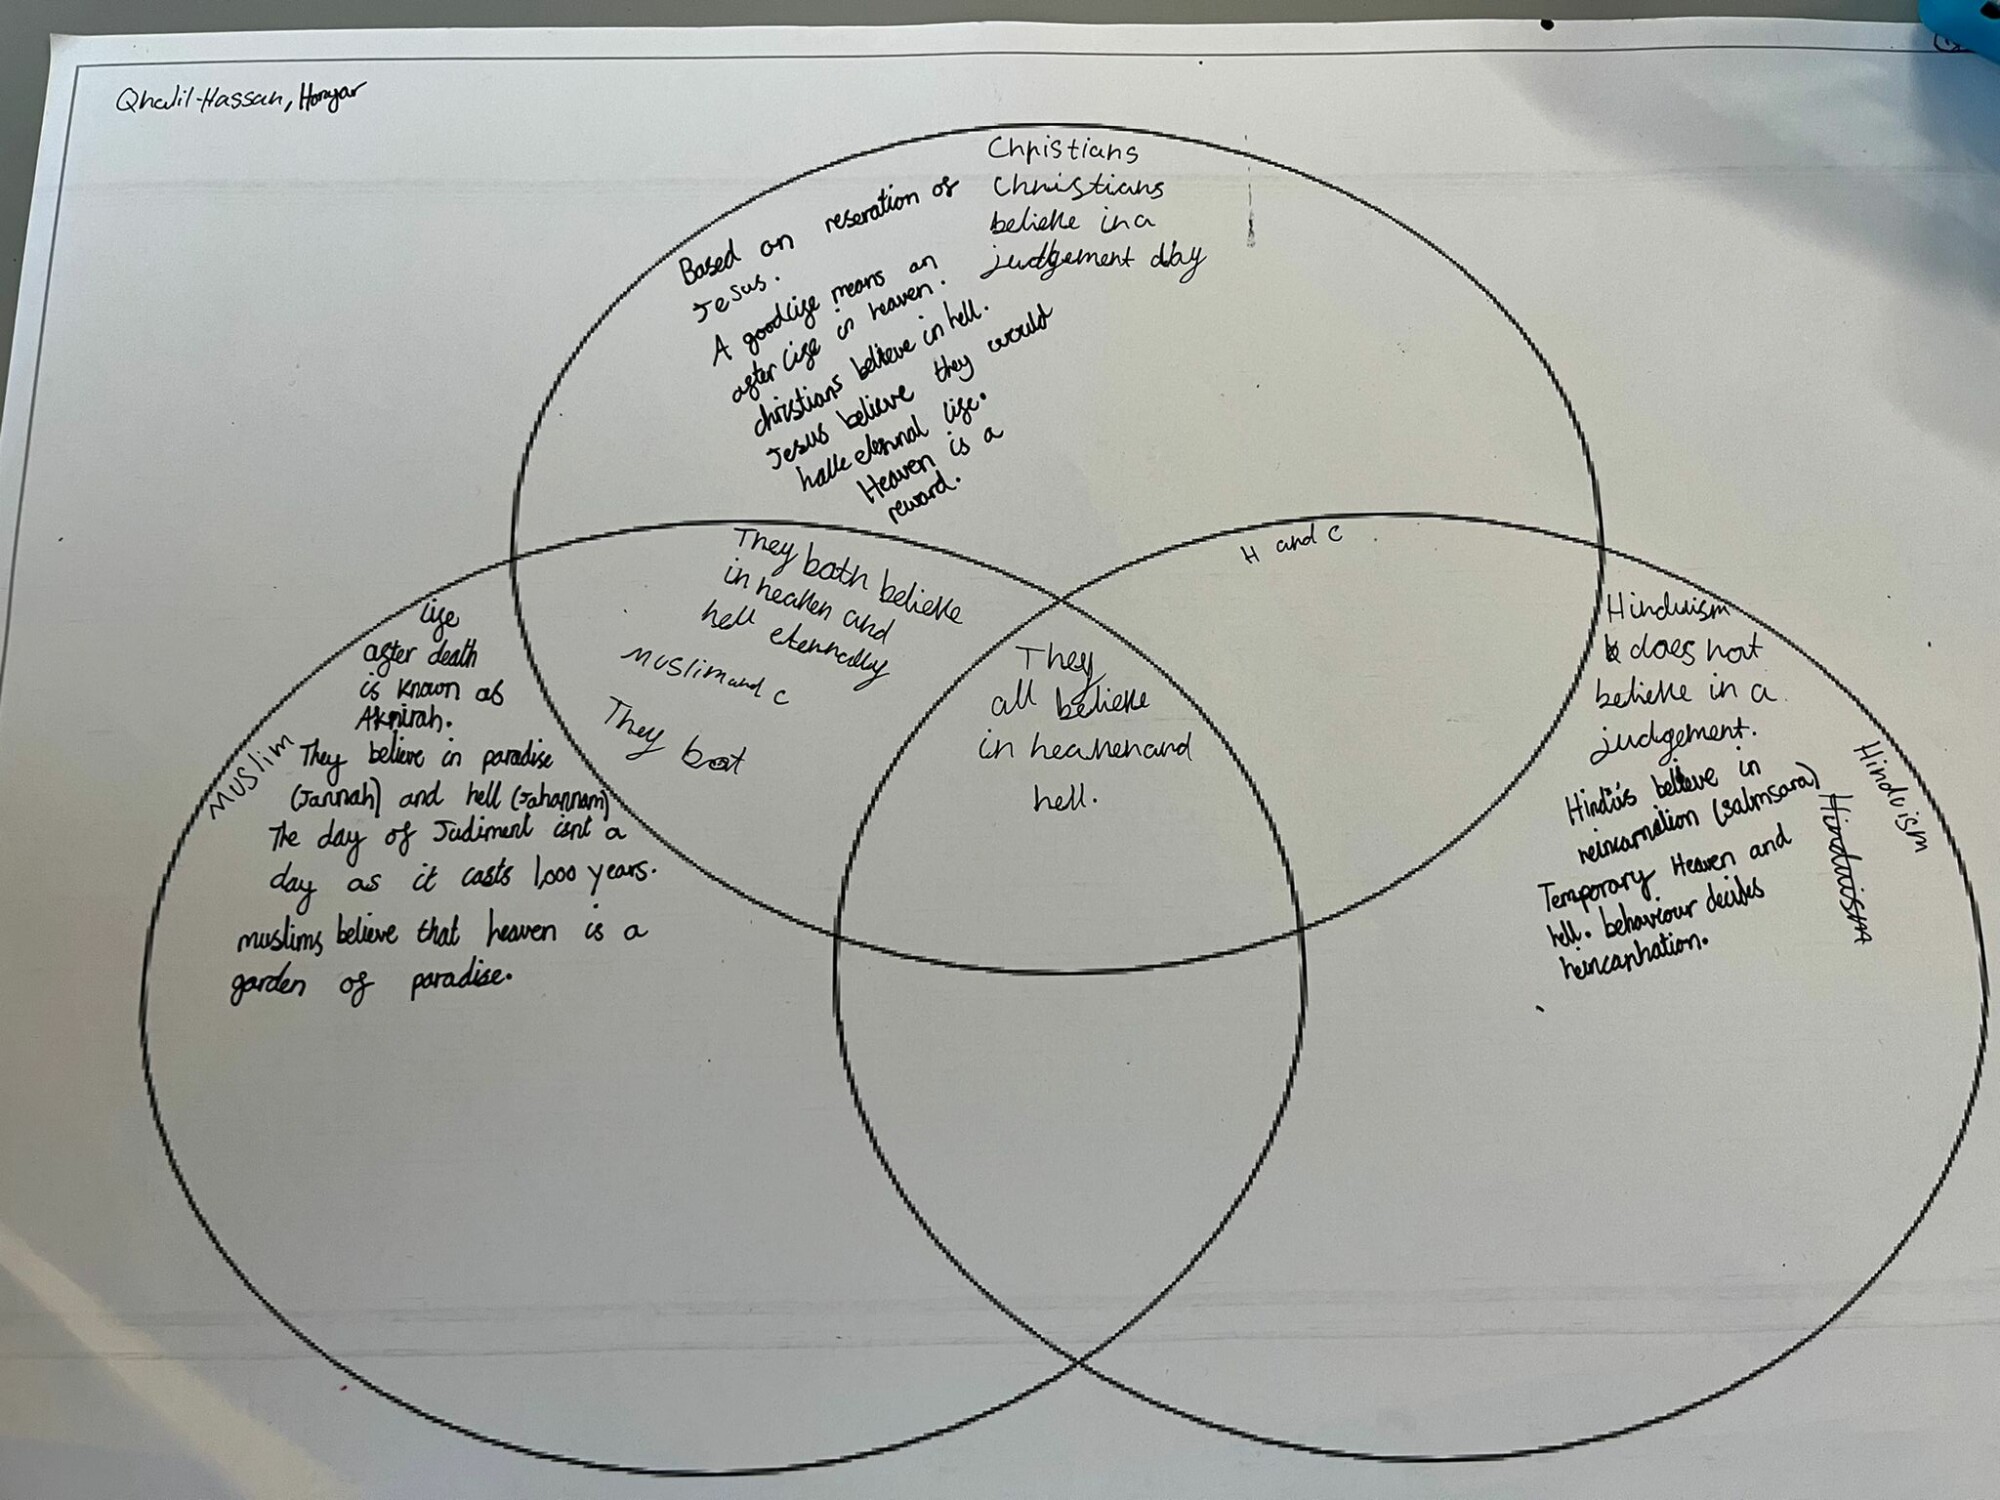 Qhalil-Hassan, Horyar
Christians
Christians
believe in a
judgement day
Based on reseration of
Jesus.
A good life means an
after life in heaven.
christians believe in hell.
Jesus believe they would
have eternal life.
Heaven is a
reward.
They both believe
in heaven and
hell eternally
Muslim and C
They bot
H and C
They
all believe
in heaven and
hell.
Muslim
life
after death
is known as
Akhirah.
They believe in paradise
(Jannah) and hell (Jahannam)
The day of Judiment isnt a
day as it lasts 1,000 years.
muslims believe that heaven is a
garden of paradise.
Hinduism
Hinduism
Hinduism
does not
believe in a
judgement.
Hindus believe in
reincarnation (salmsara)
Temporary Heaven and
hell. behaviour decides
reincarnation.